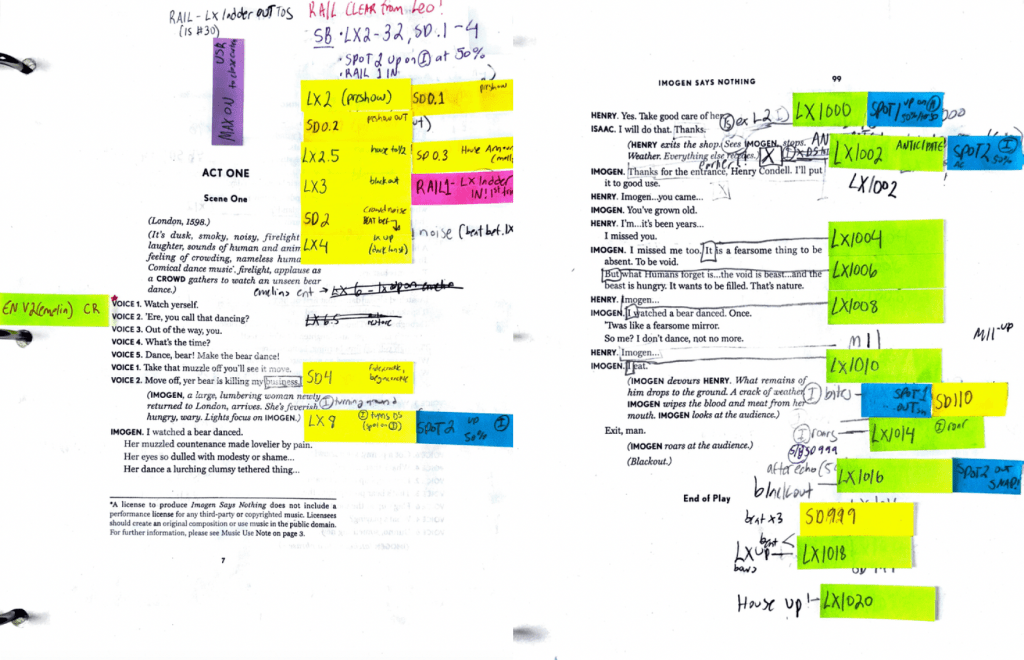 RAIL - LX ladder OUT TOS
(is #30)
RAIL CLEAR from Leo!
SB • LX2-32, SD.1-4
• SPOT 2 up on I at 50%
• RAIL 1 IN
MAX ON USR
to close curtain
LX2 (preshow)
SD0.1 preshow
SD0.2 preshow out
LX2.5 house to 1/2
SD0.3
LX3 blackout
RAIL1 - LX ladder IN!
SD2 crowd noise
LX4 lx up
noise (beat bef. LX
ACT ONE
Scene One
(London, 1598.)
(It's dusk, smoky, noisy, firelight
laughter, sounds of human and anim
feeling of crowding, nameless huma
Comical dance music*, firelight, applause as
a CROWD gathers to watch an unseen bear
dance.)
emelins ent → LX6 - lx up on emelin
EN V2(emelin) CR
VOICE 1. Watch yerself.
VOICE 2. 'Ere, you call that dancing?
LX6.5 restore
VOICE 3. Out of the way, you.
VOICE 4. What's the time?
VOICE 5. Dance, bear! Make the bear dance!
VOICE 1. Take that muzzle off you'll see it move.
VOICE 2. Move off, yer bear is killing my business.
SD4
(IMOGEN, a large, lumbering woman newly
returned to London, arrives. She's feverish
hungry, wary. Lights focus on IMOGEN.)
I turning around
LX8 I turns DS (spot on I)
SPOT2 UP 50% I
IMOGEN. I watched a bear danced.
Her muzzled countenance made lovelier by pain.
Her eyes so dulled with modesty or shame...
Her dance a lurching clumsy tethered thing...
*A license to produce Imogen Says Nothing does not include a
performance license for any third-party or copyrighted music. Licensees
should create an original composition or use music in the public domain.
For further information, please see Music Use Note on page 3.
7
IMOGEN SAYS NOTHING 99
HENRY. Yes. Take good care of her.
LX1000
SPOT1 up on
ISAAC. I will do that. Thanks.
(HENRY exits the shop. Sees IMOGEN, stops.
Weather. Everything else recedes.)
LX1002 ANTICIPATE!
SPOT2 I 50%
IMOGEN. Thanks for the entrance, Henry Condell. I'll put
it to good use.
LX1002
HENRY. Imogen...you came...
IMOGEN. You've grown old.
HENRY. I'm...it's been years...
I missed you.
LX1004
IMOGEN. I missed me too. It is a fearsome thing to be
absent. To be void.
But what Humans forget is...the void is beast...and the
beast is hungry. It wants to be filled. That's nature.
LX1006
HENRY. Imogen...
IMOGEN. I watched a bear danced. Once.
LX1008
'Twas like a fearsome mirror.
So me? I don't dance, not no more.
M11
M11-UP
HENRY. Imogen...
IMOGEN. I eat.
LX1010
(IMOGEN DEVOURS HENRY. What remains of
him drops to the ground. A crack of weather
IMOGEN wipes the blood and meat from her
mouth. IMOGEN looks at the audience.)
I bites
SPOT1 OUT
SD110
Exit, man.
(IMOGEN roars at the audience.)
I roars
LX1014 I roar
(Blackout.)
after echo
blackout
LX1016
SPOT2 OUT SNAP!
End of Play
beat x3
SD999
beat
LX up
bows
LX1018
House up!
LX1020